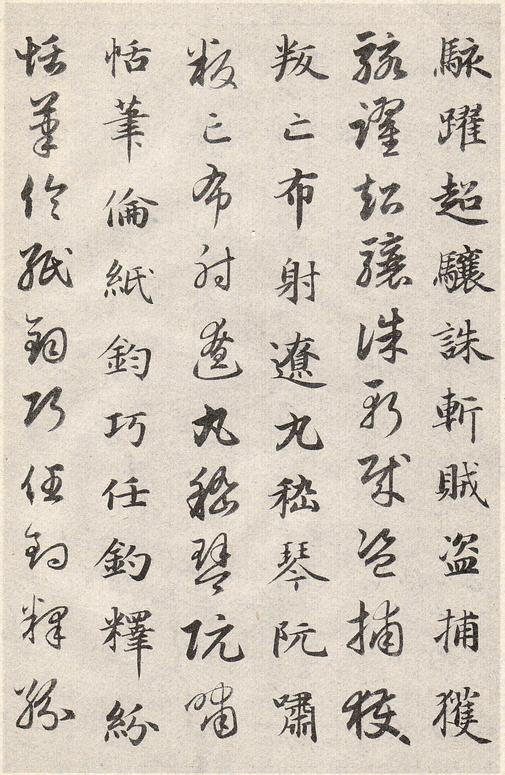 駭躍超驤誅斬賊盜捕獲
駭躍超驤誅斬賊盜捕獲
叛亡布射遼丸嵇琴阮嘯
叛亡布射遼丸嵇琴阮嘯
恬筆倫紙鈞巧任釣釋紛
恬筆倫紙鈞巧任釣釋紛